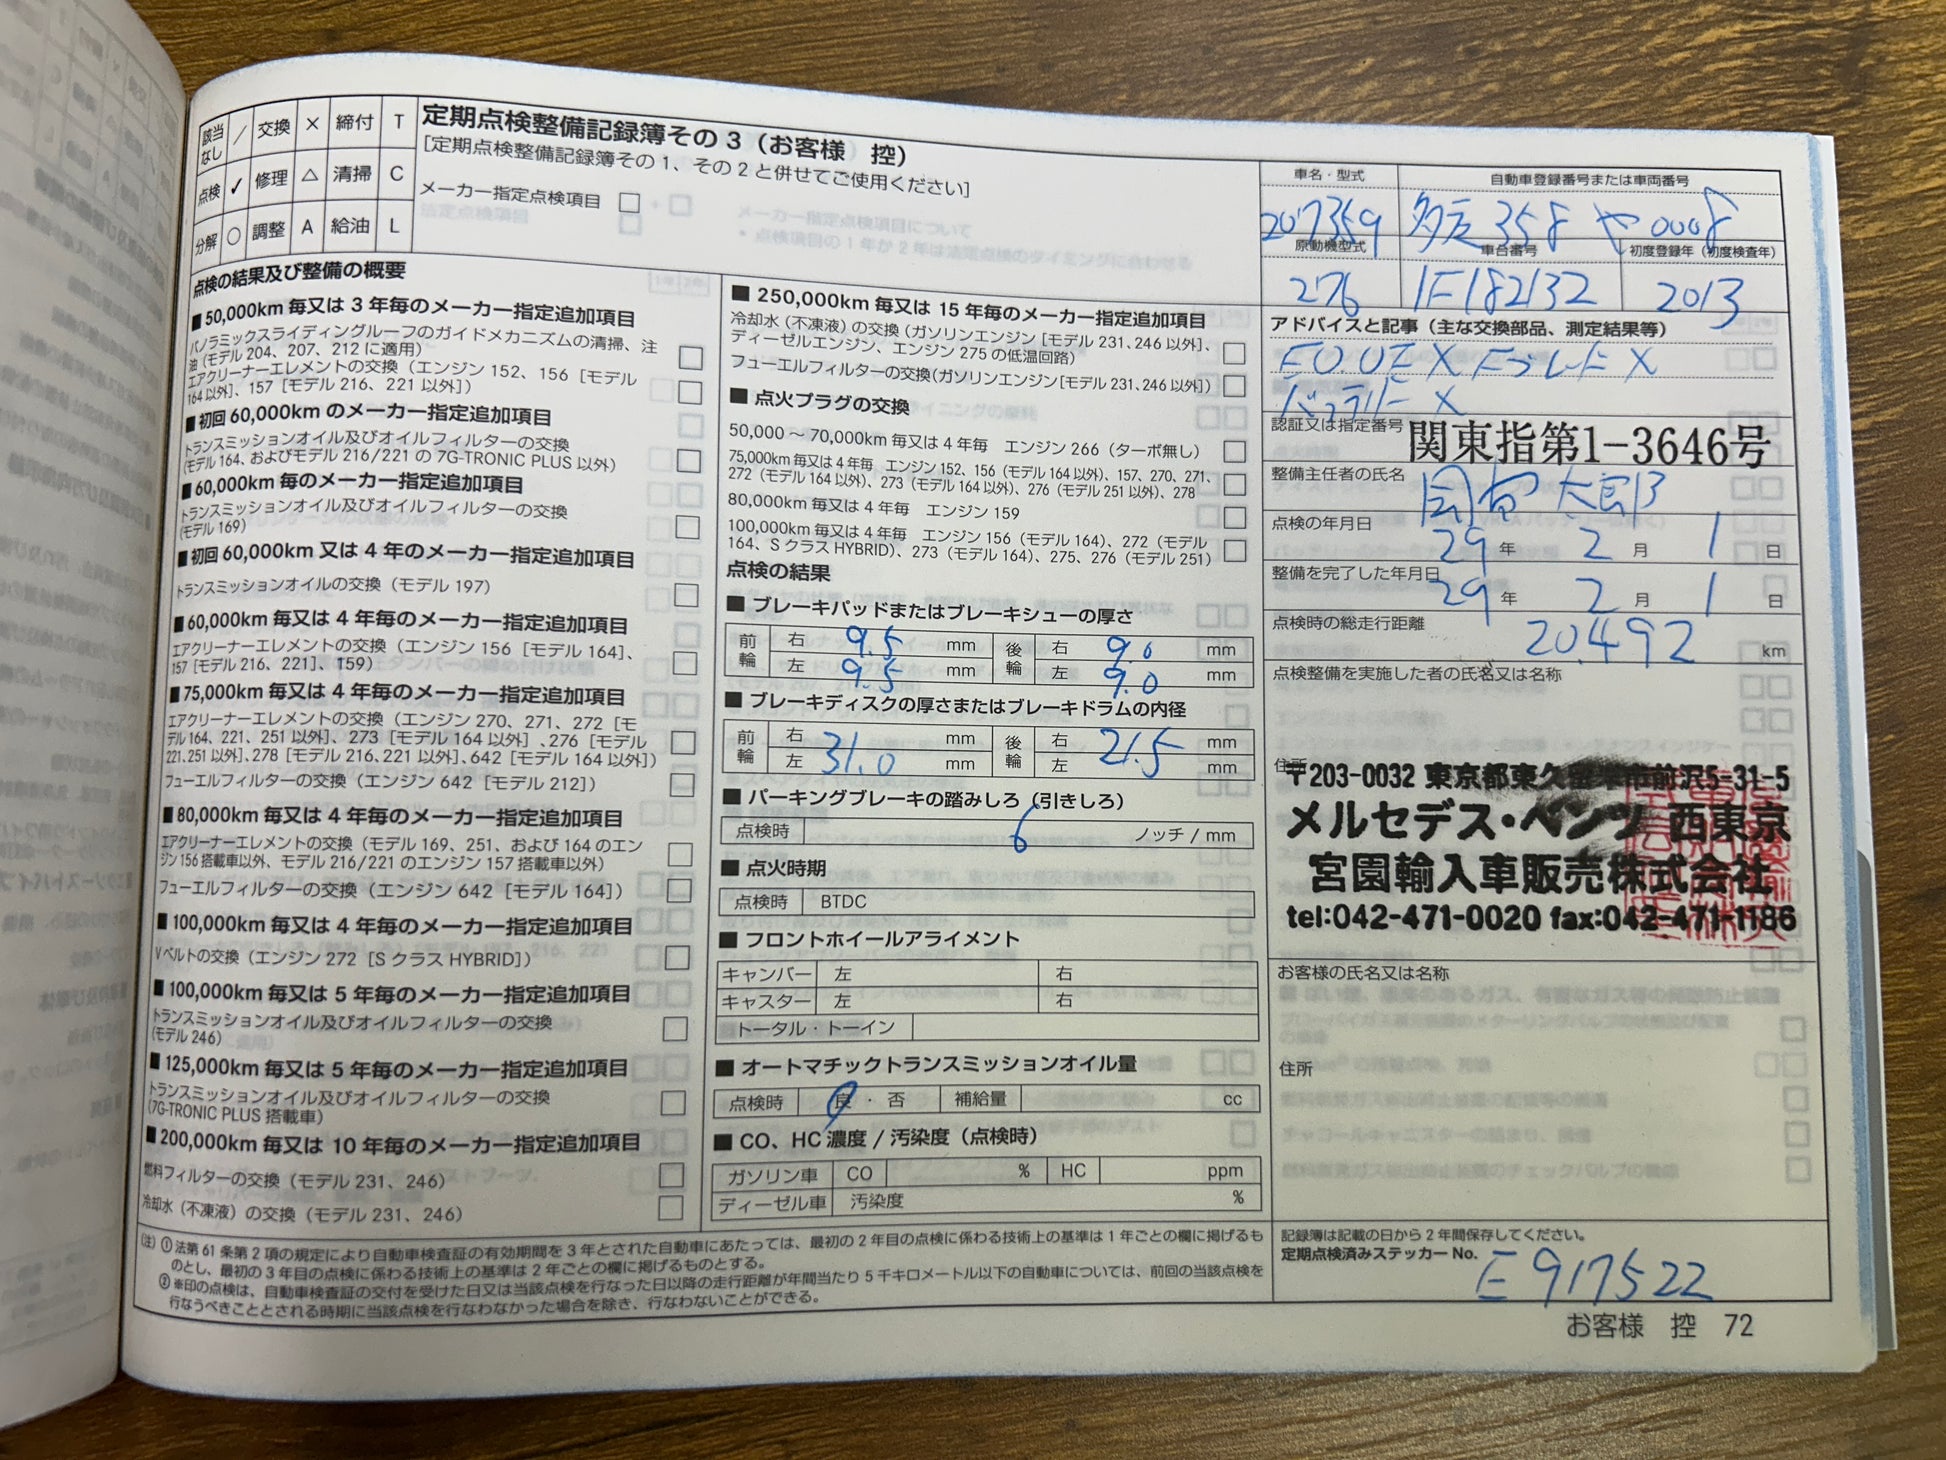 該当なし ／ 交換 × 締付 T
点検 ✓ 修理 △ 清掃 C
分解 ○ 調整 A 給油 L
定期点検整備記録簿その3（お客様 控）
［定期点検整備記録簿その1、その2と併せてご使用ください］
メーカー指定点検項目 □
点検の結果及び整備の概要
■50,000km毎又は3年毎のメーカー指定追加項目
パノラミックスライディングルーフのガイドメカニズムの清掃、注
油（モデル204、207、212に適用）
エアクリーナーエレメントの交換（エンジン152、156［モデル
164以外］、157［モデル216、221以外］）
■初回60,000kmのメーカー指定追加項目
トランスミッションオイル及びオイルフィルターの交換
（モデル164、およびモデル216/221の7G-TRONIC PLUS以外）
■60,000km毎のメーカー指定追加項目
トランスミッションオイル及びオイルフィルターの交換
（モデル169）
■初回60,000km又は4年のメーカー指定追加項目
トランスミッションオイルの交換（モデル197）
■60,000km毎又は4年毎のメーカー指定追加項目
エアクリーナーエレメントの交換（エンジン156［モデル164］、
157［モデル216、221］、159）
■75,000km毎又は4年毎のメーカー指定追加項目
エアクリーナーエレメントの交換（エンジン270、271、272［モ
デル164、221、251以外］、273［モデル164以外］、276［モデル
221、251以外］、278［モデル216、221以外］、642［モデル164以外］）
フューエルフィルターの交換（エンジン642［モデル212］）
■80,000km毎又は4年毎のメーカー指定追加項目
エアクリーナーエレメントの交換（モデル169、251、および164のエン
ジン156搭載車以外、モデル216/221のエンジン157搭載車以外）
フューエルフィルターの交換（エンジン642［モデル164］）
■100,000km毎又は4年毎のメーカー指定追加項目
Vベルトの交換（エンジン272［SクラスHYBRID］）
■100,000km毎又は5年毎のメーカー指定追加項目
トランスミッションオイル及びオイルフィルターの交換
（モデル246）
■125,000km毎又は5年毎のメーカー指定追加項目
トランスミッションオイル及びオイルフィルターの交換
（7G-TRONIC PLUS搭載車）
■200,000km毎又は10年毎のメーカー指定追加項目
燃料フィルターの交換（モデル231、246）
冷却水（不凍液）の交換（モデル231、246）
■250,000km毎又は15年毎のメーカー指定追加項目
冷却水（不凍液）の交換（ガソリンエンジン［モデル231、246以外］、
ディーゼルエンジン、エンジン275の低温回路）
フューエルフィルターの交換（ガソリンエンジン［モデル231、246以外］）
■点火プラグの交換
50,000～70,000km毎又は4年毎 エンジン266（ターボ無し）
75,000km毎又は4年毎 エンジン152、156（モデル164以外）、157、270、271、
272（モデル164以外）、273（モデル164以外）、276（モデル251以外）、278
80,000km毎又は4年毎 エンジン159
100,000km毎又は4年毎 エンジン156（モデル164）、272（モデル
164、SクラスHYBRID）、273（モデル164）、275、276（モデル251）
点検の結果
■ブレーキパッドまたはブレーキシューの厚さ
前輪 右 9.5 mm 後輪 右 9.0 mm
左 9.5 mm 左 9.0 mm
■ブレーキディスクの厚さまたはブレーキドラムの内径
前輪 右 mm 後輪 右 21.5 mm
左 31.0 mm 左 mm
■パーキングブレーキの踏みしろ（引きしろ）
点検時 6 ノッチ / mm
■点火時期
点検時 BTDC
■フロントホイールアライメント
キャンバー 左 右
キャスター 左 右
トータル・トーイン
■オートマチックトランスミッションオイル量
点検時 良・否 補給量 cc
■CO、HC濃度 / 汚染度（点検時）
ガソリン車 CO % HC ppm
ディーゼル車 汚染度 %
車名・型式 自動車登録番号または車両番号
207359 多摩 358 や 0008
原動機型式 車台番号 初度登録年（初度検査年）
276 1F182132 2013
アドバイスと記事（主な交換部品、測定結果等）
E.O.OE X Fブレード X
バッテリー X
認証又は指定番号 関東指第1-3646号
整備主任者の氏名 太郎
点検の年月日 29 年 2 月 1 日
整備を完了した年月日 29 年 2 月 1 日
点検時の総走行距離 20.492 km
点検整備を実施した者の氏名又は名称
住所
〒203-0032 東京都東久留米市前沢5-31-5
メルセデス・ベンツ 西東京
宮園輸入車販売株式会社
tel:042-471-0020 fax:042-471-1186
お客様の氏名又は名称
住所
記録簿は記載の日から2年間保存してください。
定期点検済みステッカーNo. E917522
（注）①法第61条第2項の規定により自動車検査証の有効期間を3年とされた自動車にあたっては、最初の2年目の点検に係わる技術上の基準は1年ごとの欄に掲げるも
のとし、最初の3年目の点検に係わる技術上の基準は2年ごとの欄に掲げるものとする。
②※印の点検は、自動車検査証の交付を受けた日又は当該点検を行なった日以降の走行距離が年間当たり5千キロメートル以下の自動車については、前回の当該点検を
行なうべきこととされる時期に当該点検を行なわなかった場合を除き、行なわないことができる。
お客様 控 72